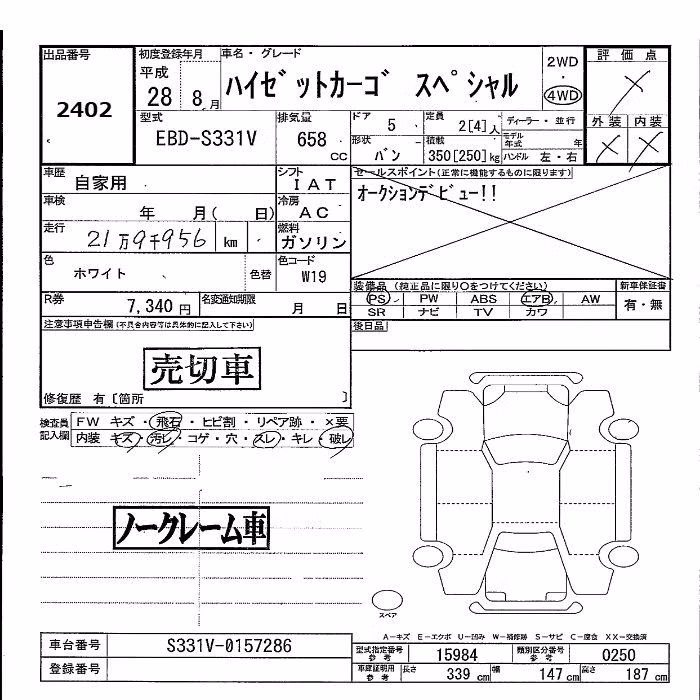 出品番号
2402
初度登録年月
平成
28 8 月
車名・グレード
ハイゼットカーゴ スペシャル
2WD
・
4WD
評価点
×
型式
EBD-S331V
排気量
658
CC
ドア 5
定員 2[4] 人
ディーラー・並行
形状 バン
積載 350[250]kg
モデル年式 年
ハンドル 左・右
外装 内装
× ×
車歴
自家用
シフト
IAT
セールスポイント(正常に機能するものに限ります)
オークションデビュー!!
車検
年 月( 日)
冷房
AC
走行
21万9千956 km
燃料
ガソリン
色
ホワイト
色替
色コード
W19
装備品 (純正品に限り○をつけてください)
PS PW ABS エアB AW
SR ナビ TV カワ
新車保証書
有・無
R券
7,340 円
名変通知期限
月 日
後日品
注意事項申告欄(不具合内容等は具体的に記入して下さい)
売切車
修復歴 有〔箇所 〕
検査員記入欄
FW キズ・飛石・ヒビ割・リペア跡・×要
内装 キズ・汚レ・コゲ・穴・スレ・キレ・破レ
ノークレーム車
スペア
A－キズ E－エクボ U－凹み W－補修跡 S－サビ C－腐食 XX－交換済
車台番号
S331V-0157286
登録番号
型式指定番号参考
15984
類別区分番号参考
0250
車庫証明用参考
長さ 339 cm
幅 147 cm
高さ 187 cm